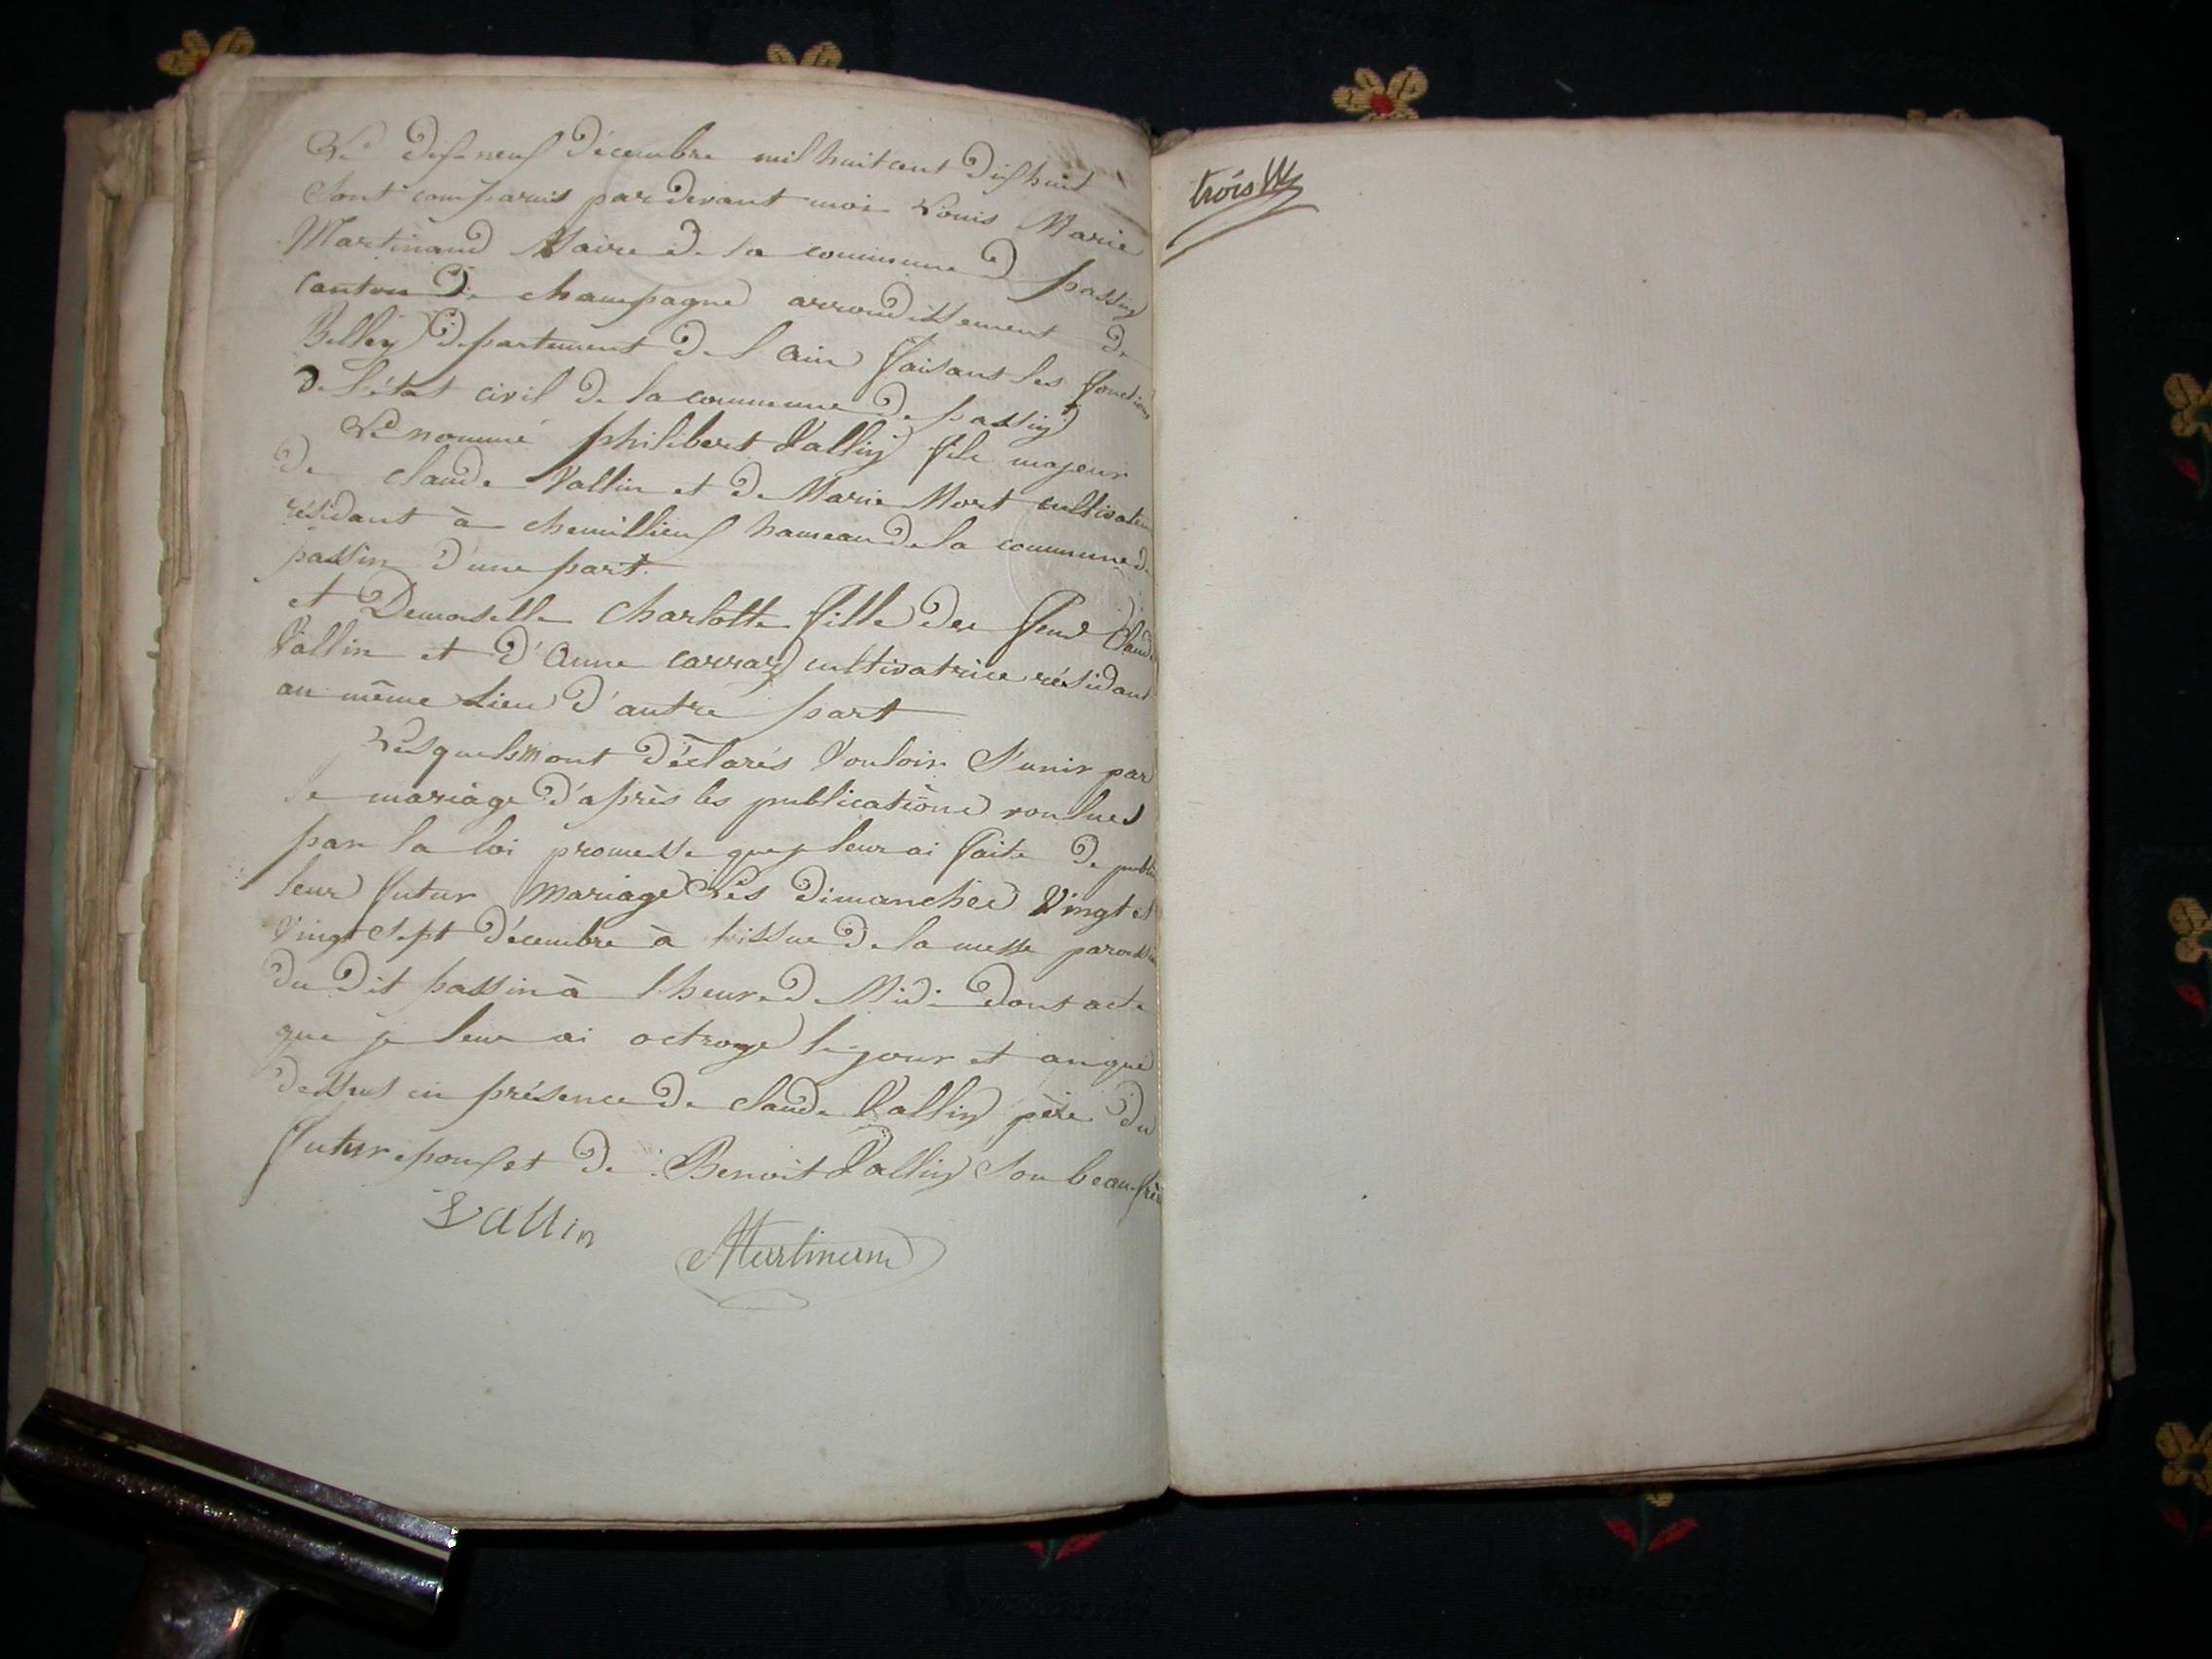 Le dix neuf décembre mil huit cent dix huit
Sont comparus par devant moi Louis Marie
Martinand Maire de la commune d passin
canton de champagne arrondissement de
Belley département de l'ain faisant les fonctions
de l'état civil de la commune de passin
Le nommé philibert Vallin fils majeur
de claude Vallin et de Marie Mort cultivateur
résidant à chemillieu hameau de la commune de
passin d'une part
et Demoiselle charlotte fille de feu Claude
Vallin et d'anne carraz cultivatrice résidant
au même Lieu d'autre part
Lesquels m'ont déclarés Vouloir S'unir par
le mariage d'après les publications voulues
par la loi promesse que je leur ai faite de
leur futur mariage Les dimanches Vingt et
Vingt sept décembre à l'issue de la messe
du dit passin à l'heure de Midi dont acte
que je leur ai octroyé le jour et an que
dessus en présence de claude Vallin père du
futur epoux et de Benoit Vallin Son beau frère
Vallin
Martinand
trois